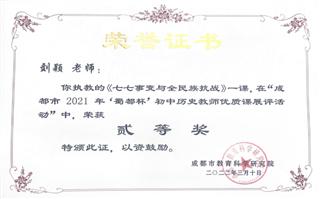 荣誉证书
刘颖 老师：
你执教的《七七事变与全民族抗战》一课，在“成
都市 2021 年‘蜀都杯’初中历史教师优质课展评活
动”中，荣获
贰等奖
特颁此证，以资鼓励。
成都市教育科学研究院
二〇二二年三月十日